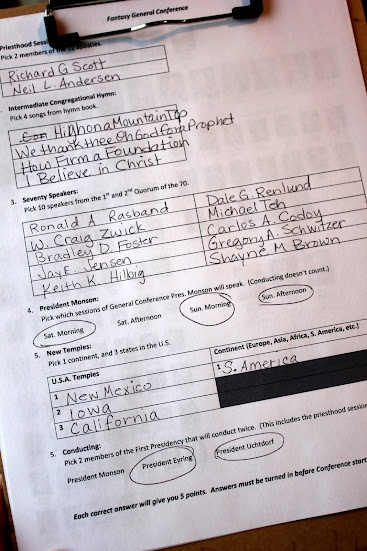 Fantasy General Conference
Priesthood Sessi
Pick 2 members of apostles.
Richard G. Scott
Neil L. Andersen
Intermediate Congregational Hymn:
Pick 4 songs from hymn book.
High on a Mountain Top
We thank thee Oh God for a Prophet
How Firm a Foundation
I Believe in Christ
3. Seventy Speakers:
Pick 10 speakers from the 1st and 2nd Quorum of the 70.
Ronald A Rasband Dale G. Renlund
W. Craig Zwick Michael Teh
Bradley D. Foster Carlos A. Godoy
Jay E. Jensen Gregory A. Schwitzer
Keith K. Hilbig Shayne M Brown
4. President Monson:
Pick which sessions of General Conference Pres. Monson will speak. (Conducting doesn't count.)
Sat. Morning Sat. Afternoon Sun. Morning Sun. Afternoon
5. New Temples:
Pick 1 continent, and 3 states in the U.S.
U.S.A. Temples Continent (Europe, Asia, Africa, S. America, etc.)
1 New Mexico 1 S. America
2 Iowa
3 California
5. Conducting:
Pick 2 members of the First Presidency that will conduct twice. (This includes the priesthood session
President Monson President Eyring President Uchtdorf
Each correct answer will give you 5 points. Answers must be turned in before Conference start